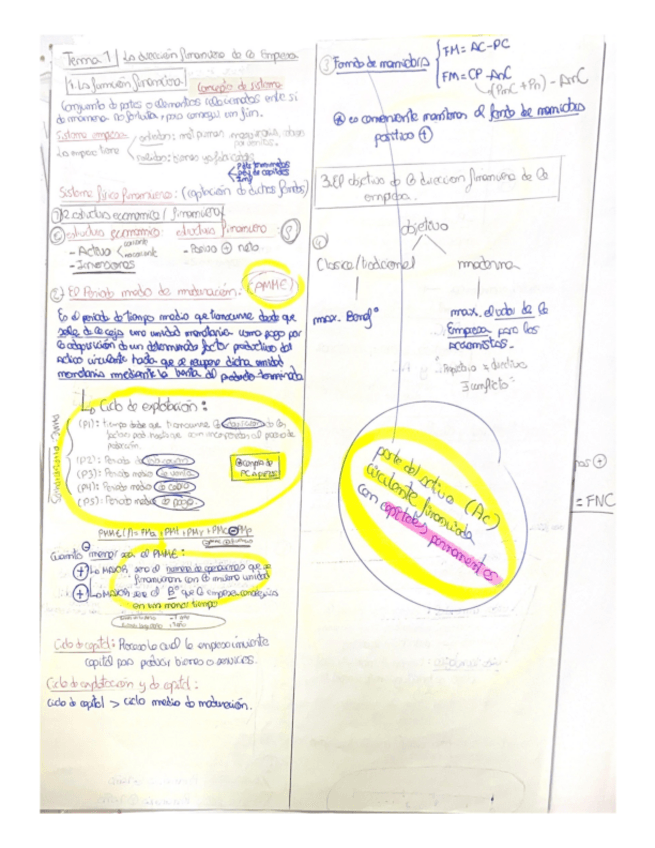 Tema 1 | La dirección financiera de la Empresa
1. La función financiera
Concepto de sistema
Conjunto de partes o elementos relacionados entre sí
de manera, para conseguir un fin.
Sistema empresa
entradas: mat primas, maquinaria
salidas: bienes ya fabricados
Sistema físico financiero: (captación de dichos fondos)
1) 2 estructuras económica / financiera
estructura económica:
estructura financiera
- Activo corriente
no corriente
- Inversiones
- Pasivo + neto
2) El Periodo medio de maduración: (PMME)
Es el periodo de tiempo medio que transcurre desde que
sale de la caja una unidad monetaria como pago por
la adquisición de un determinado factor productivo del
activo circulante hasta que se recupere dicha unidad
monetaria mediante la venta del producto terminado
↳ Ciclo de explotación:
(P1): tiempo desde que transcurre la adquisición de los
factores hasta que son incorporados al proceso de
producción
(P2): Periodo de fabricación
(P3): Periodo medio de venta
(P4): Periodo medio de cobro
(P5): Periodo medio de pago
PMME(f) = PMa + PMf + PMv + PMc - PMp
Cuanto menor sea el PMME:
+ La MAYOR será el número de operaciones que se
financiaran con la misma unidad
+ La MAYOR será el Bº que la empresa conseguira
en un menor tiempo
Ciclo de capital: Proceso la cual la empresa invierte
capital para producir bienes o servicios.
Ciclo de explotación y de capital:
ciclo de capital > ciclo medio de maduración.
3 Fondo de maniobra
FM = AC - PC
FM = CP - AnC
(PnC + Pn) - AnC
es conveniente mantener el fondo de maniobra
positivo +
3. El objetivo de la direccion financiera de la
empresa.
4
objetivo
Clasica/tradicional
moderna
max. Benfº
max. el valor de la
Empresa para los
accionistas.
∃ conflicto"
parte del activo (AC)
circulante financiada
con capitales permanentes
= FNC